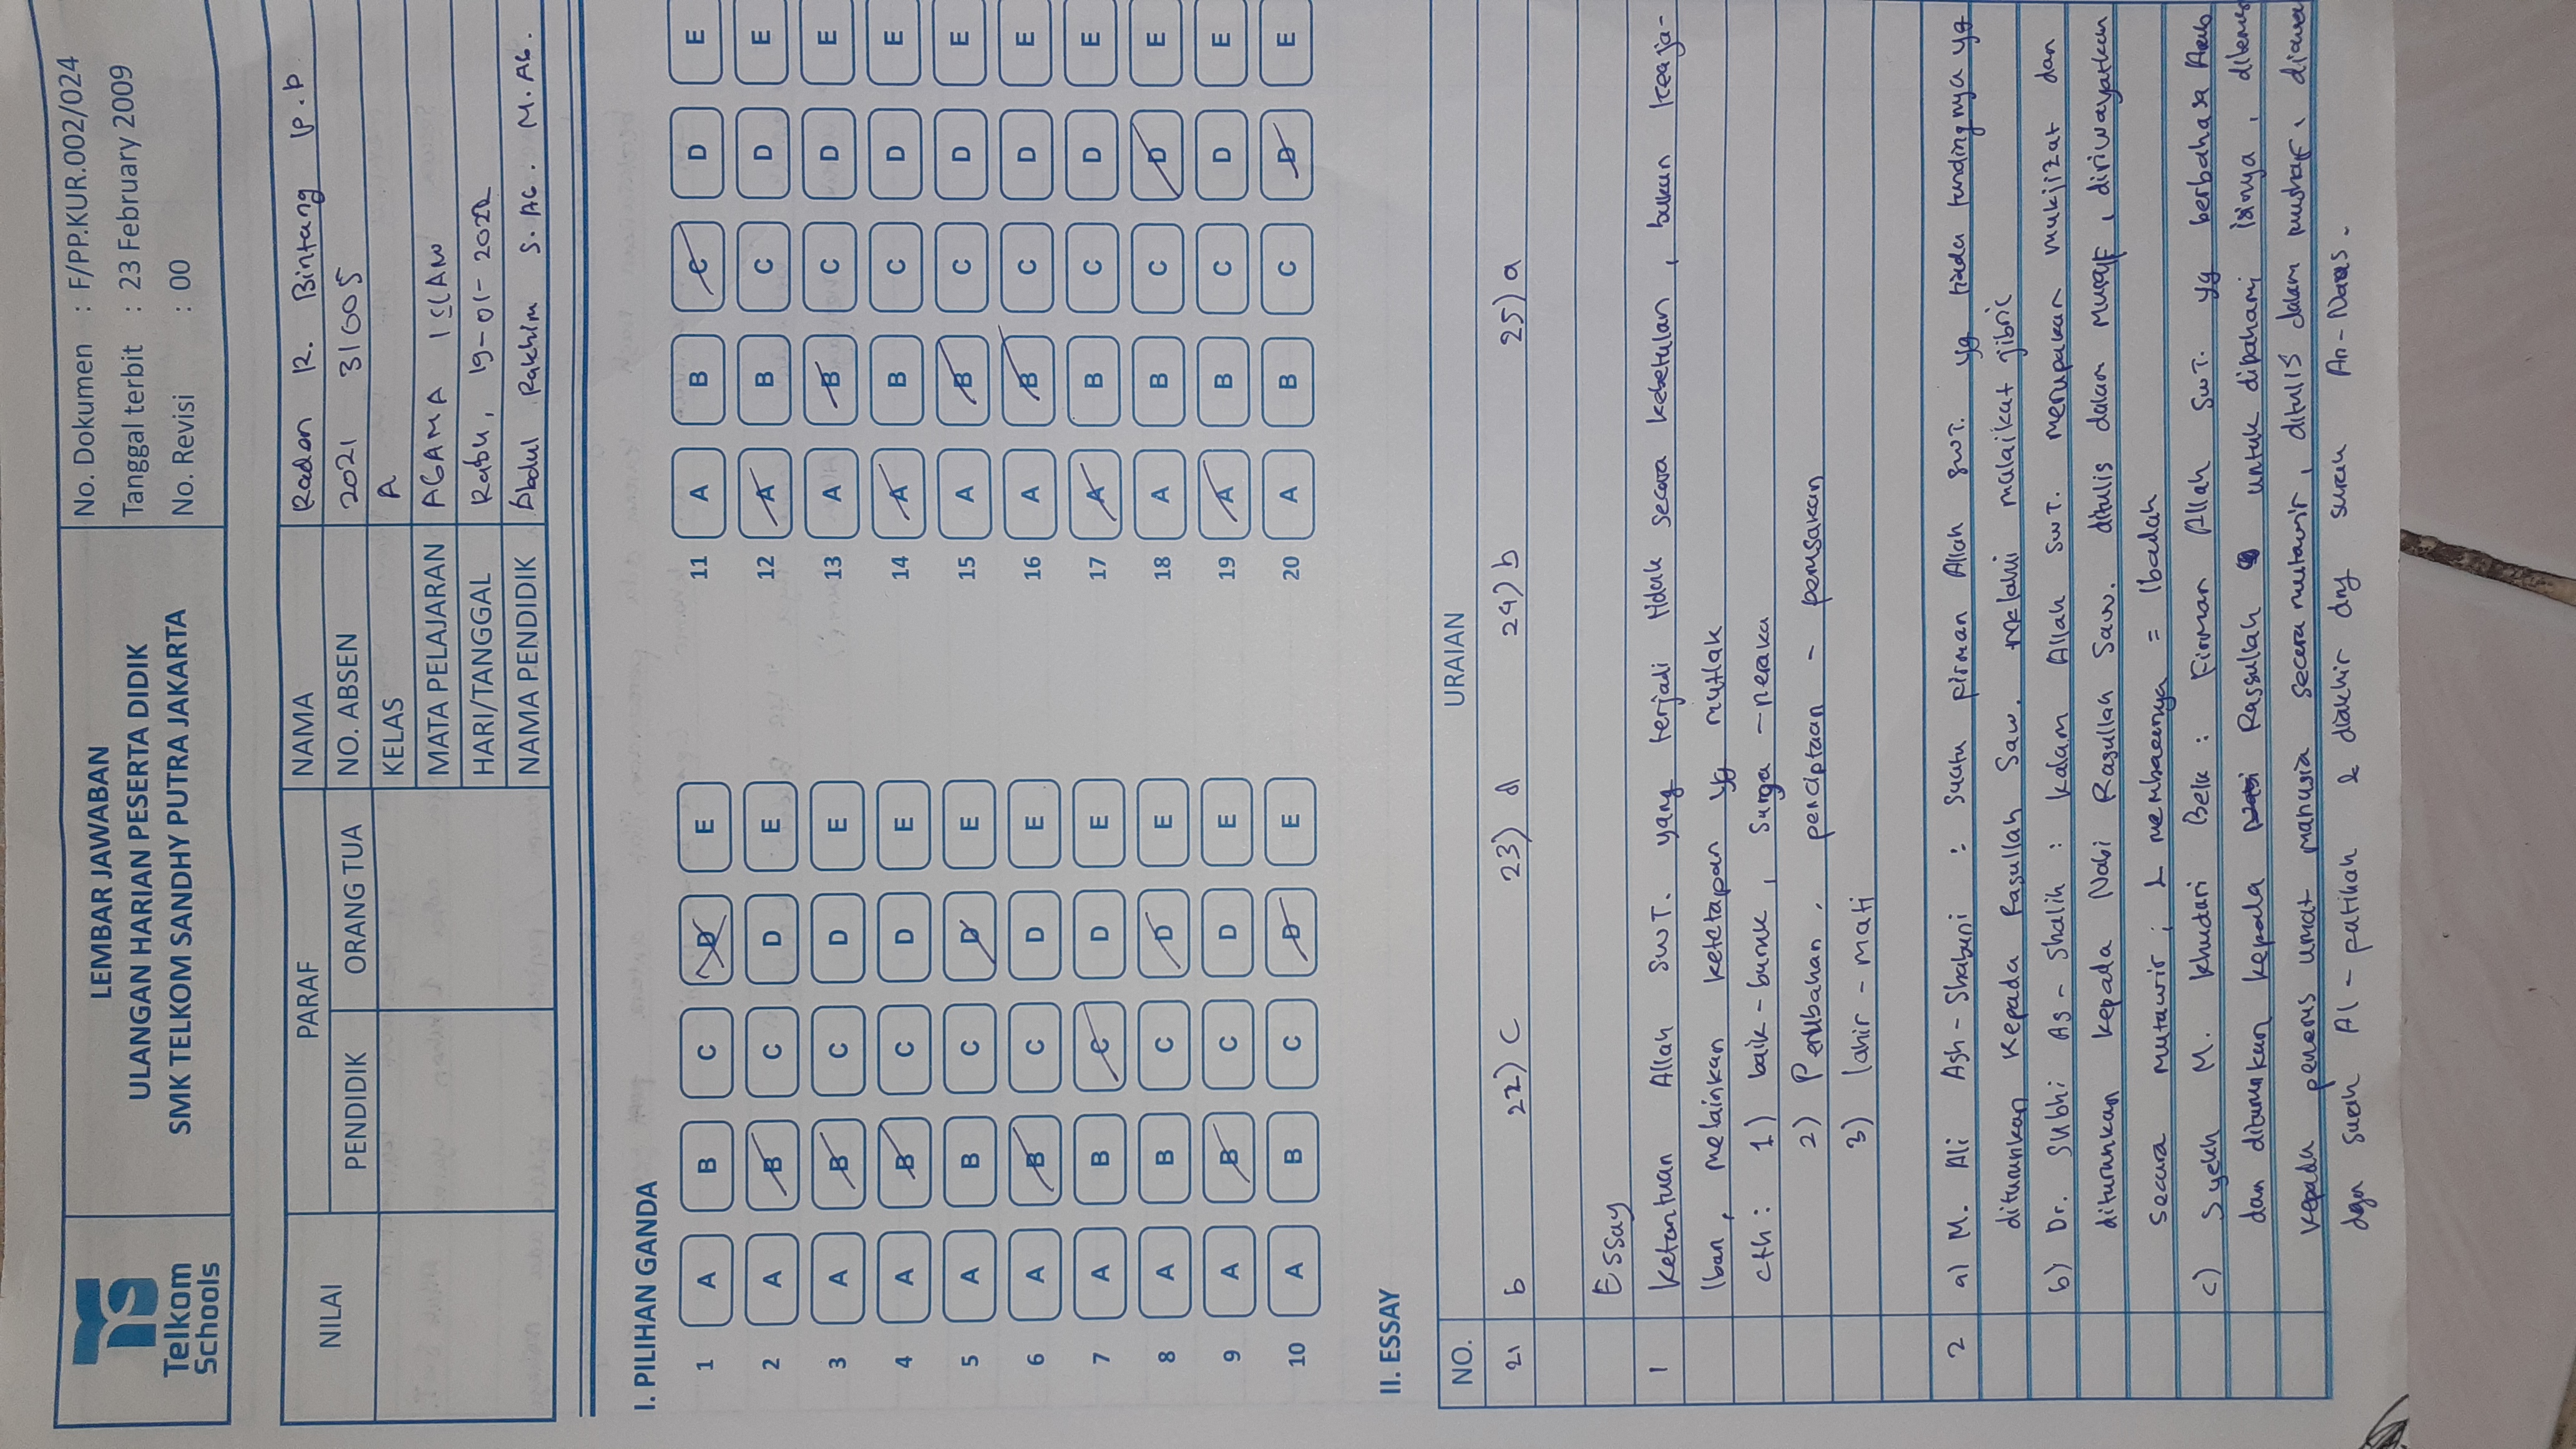 Telkom
Schools
LEMBAR JAWABAN
ULANGAN HARIAN PESERTA DIDIK
SMK TELKOM SANDHY PUTRA JAKARTA
No. Dokumen : F/PP.KUR.002/024
Tanggal terbit : 23 February 2009
No. Revisi : 00
NILAI
PARAF
PENDIDIK ORANG TUA
NAMA Raden R. Bintang P.b
NO. ABSEN 2021 31005
KELAS A
MATA PELAJARAN AGAMA ISLAM
HARI/TANGGAL Rabu, 19-01-2022
NAMA PENDIDIK Abdul Rakhim S.AG. M.AG.
I. PILIHAN GANDA
1 A B C D E 11 A B C D E
2 A B C D E 12 A B C D E
3 A B C D E 13 A B C D E
4 A B C D E 14 A B C D E
5 A B C D E 15 A B C D E
6 A B C D E 16 A B C D E
7 A B C D E 17 A B C D E
8 A B C D E 18 A B C D E
9 A B C D E 19 A B C D E
10 A B C D E 20 A B C D E
II. ESSAY
NO. URAIAN
21 b 22) C 23) d 24) b 25) a
Essay
1 Ketentuan Allah SWT. yang terjadi tidak secara kebetulan, bukan keaja-
iban, melainkan ketetapan yg mutlak
cth : 1) baik - buruk, Surga - neraka
2) Perubahan, penciptaan - perusakan
3) lahir - mati
2 a) M. Ali Ash-Shabuni : Suatu Firman Allah SWT. yg tiada tandingnya yg
diturunkan kepada Rasullah Saw. melalui malaikat jibril
b) Dr. Subhi As-Shalih : kalam Allah SWT. merupakan mukjizat dan
diturunkan kepada Nabi Rasullah Saw. ditulis dalam musaf, diriwayatkan
secara mutawir; & membacanya = Ibadah
c) Syekh M. Khudari Beik : Firman Allah SWT. yg berbahasa Arab
dan diturunkan kepala Rassullah untuk dipahami isinya,
kepada penerus umat manusia secara mutawir, ditulis dalam mushaf,
dgn surah Al-patihah & diakhir dng surah An-Naas.